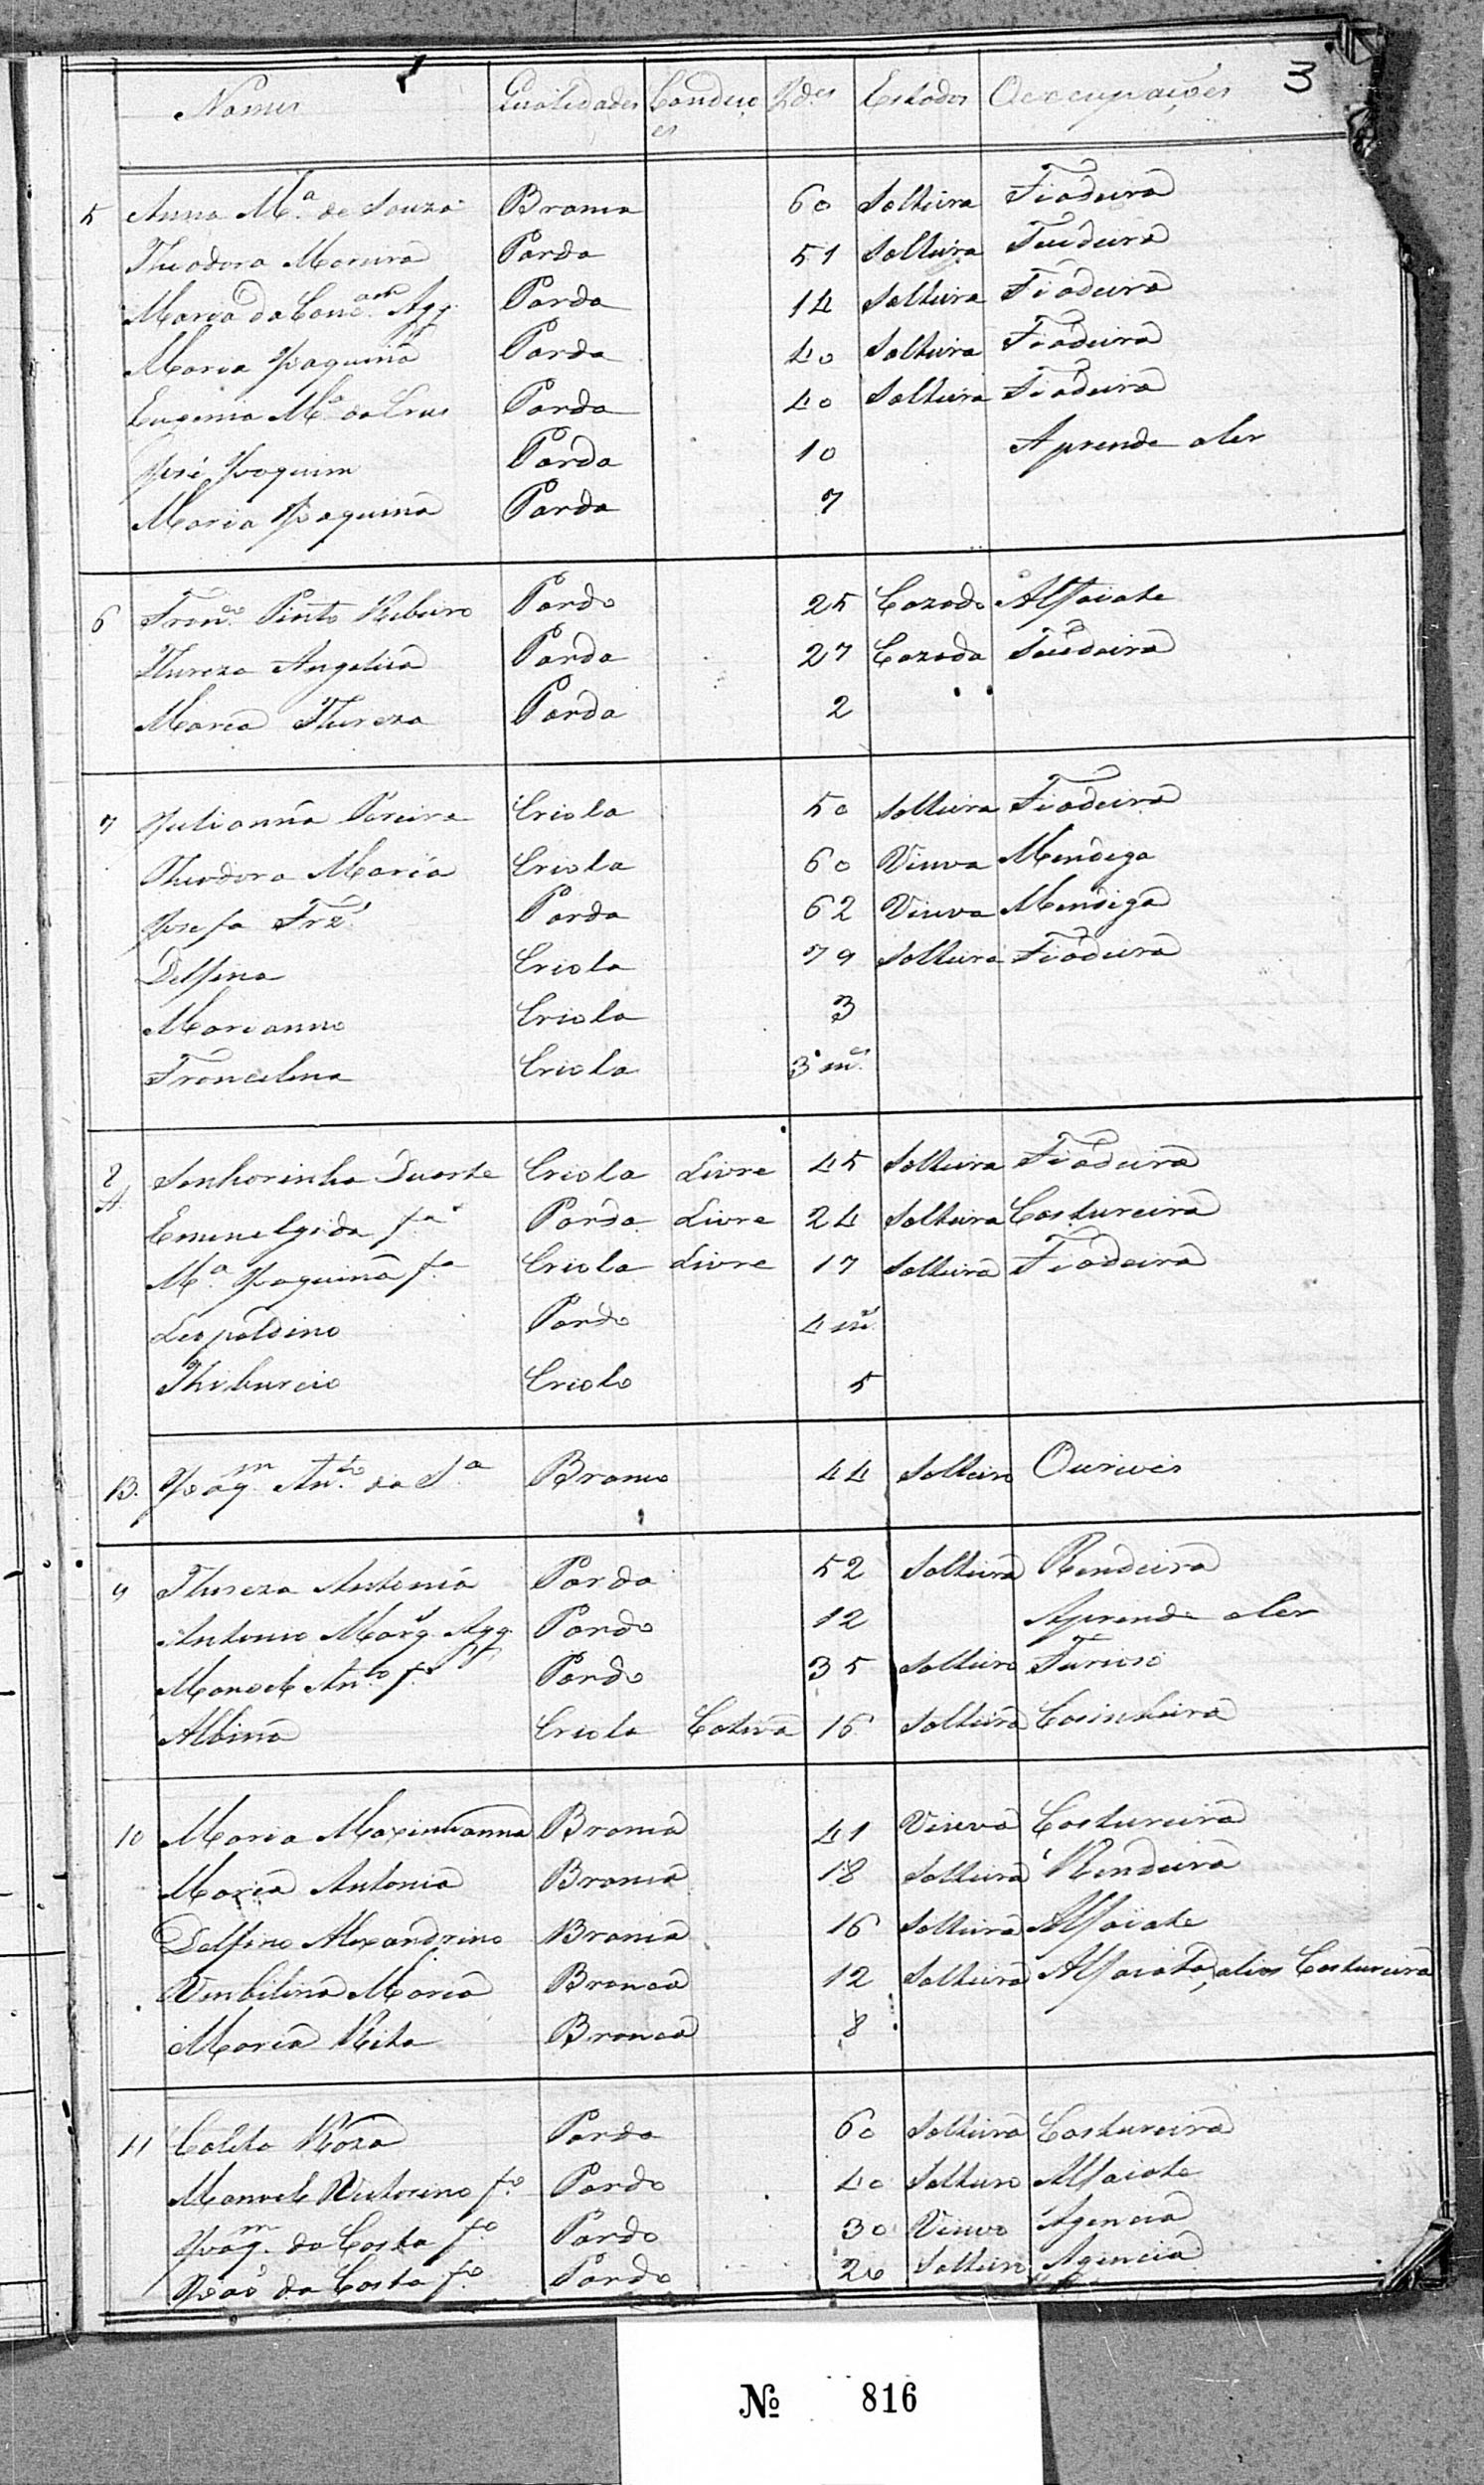 3
Nomes Qualidades Condições Id.es Estados Occupações
5 Anna M.a de Souza Branca 60 Solteira Fiadeira
Theodora Moreira Parda 51 Solteira Tecideira
Maria da Conc.am Agg. Parda 14 Solteira Fiadeira
Maria Joaquina Parda 40 Solteira Fiadeira
Eugenia M.a da Crus Parda 40 Solteira Fiadeira
José Joaquim Pardo 10 Aprende a ler
Maria Joaquina Parda 7
6 Fran.co Pinto Ribeiro Pardo 25 Cazado Alfaiate
Thereza Angelica Parda 27 Cazada Tecedeira
Maria Thereza Parda 2
7 Julianna Pereira Criola 50 Solteira Fiadeira
Theodora Maria Criola 60 Viuva Mendiga
Josefa Frz' Parda 62 Viuva Mendiga
Delfina Criola 79 Solteira Fiadeira
Marianno Criola 3
Francelina Criola 3 m.es
8 A. Senhorinha Duarte Criola Livre 45 Solteira Fiadeira
Emenelgida f.a Parda Livre 24 Solteira Costureira
M.a Joaquina f.a Criola Livre 17 Solteira Fiadeira
Leopoldino Pardo 4 m.s
Thiburcio Criolo 5
B. Joaq.m An.to da S.a Branco 44 Solteiro Ourives
9 Thereza Antonia Parda 52 Solteira Rendeira
Antonio Marq.s Agg. Pardo 12 Aprende a ler
Manoel An.to f.o Pardo 35 Solteiro Furioso
Albina Criola Cativa 16 Solteira Cosinheira
10 Maria Maximianna Branca 41 Viuva Costureira
Maria Antonia Branca 18 Solteira Rendeira
Delfino Alexandrino Branca 16 Solteira Alfaiate
Umbilina Maria Branca 12 Solteira Alfaiata, alias Costureira
Maria Rita Branca 8
11 Coleta Roza Parda 60 Solteira Costureira
Manoel Victorino f.o Pardo 40 Solteiro Alfaiate
Joaq.m da Costa f.o Pardo 30 Viuvo Agencia
João da Costa f.o Pardo 20 Solteiro Agencia
№ 816